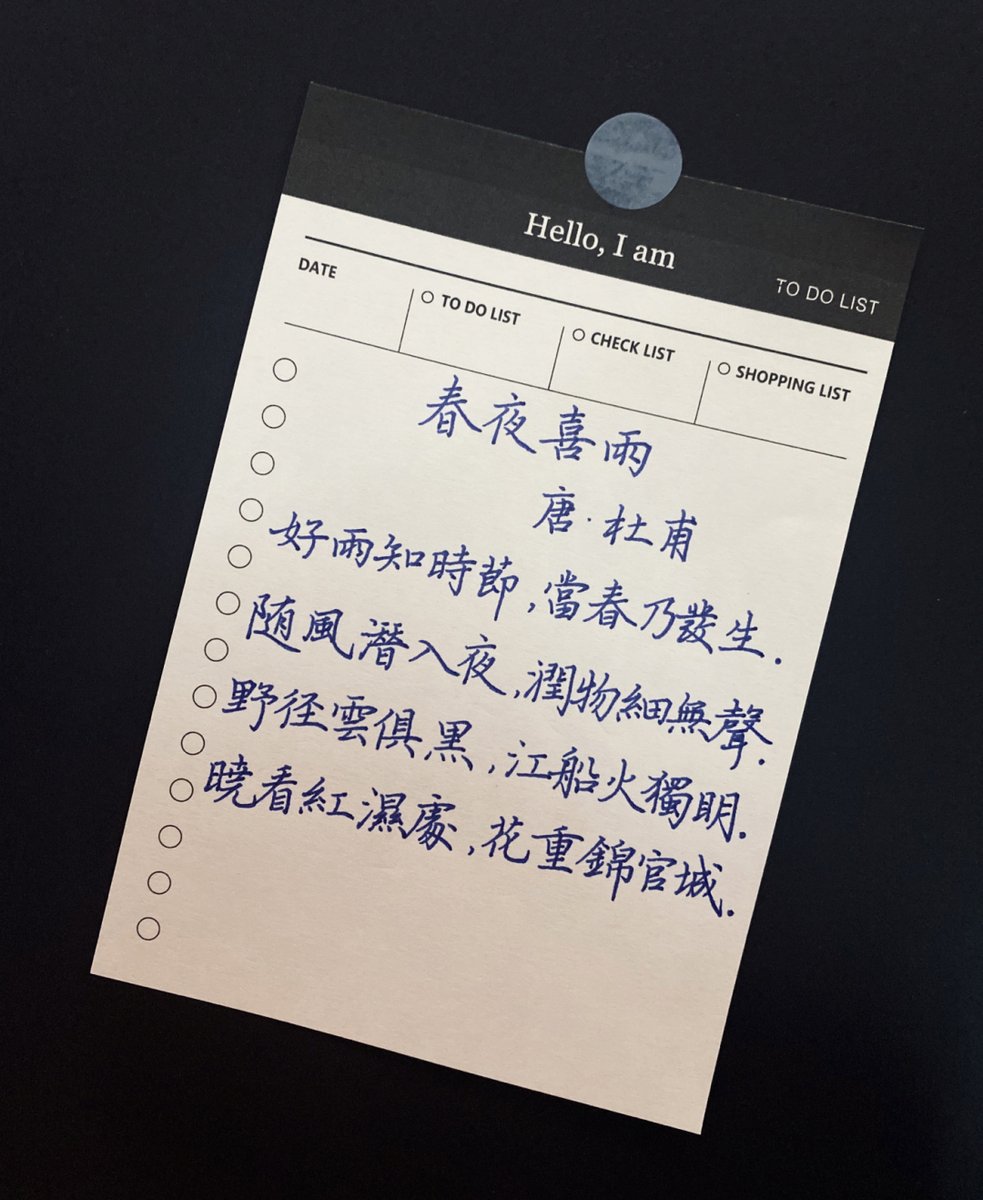 Hello, I am
TO DO LIST
DATE
TO DO LIST
CHECK LIST
SHOPPING LIST
春夜喜雨
唐·杜甫
好雨知時節,當春乃發生.
随風潛入夜,潤物細無聲.
野径雲俱黑,江船火獨明.
曉看紅濕處,花重錦官城.